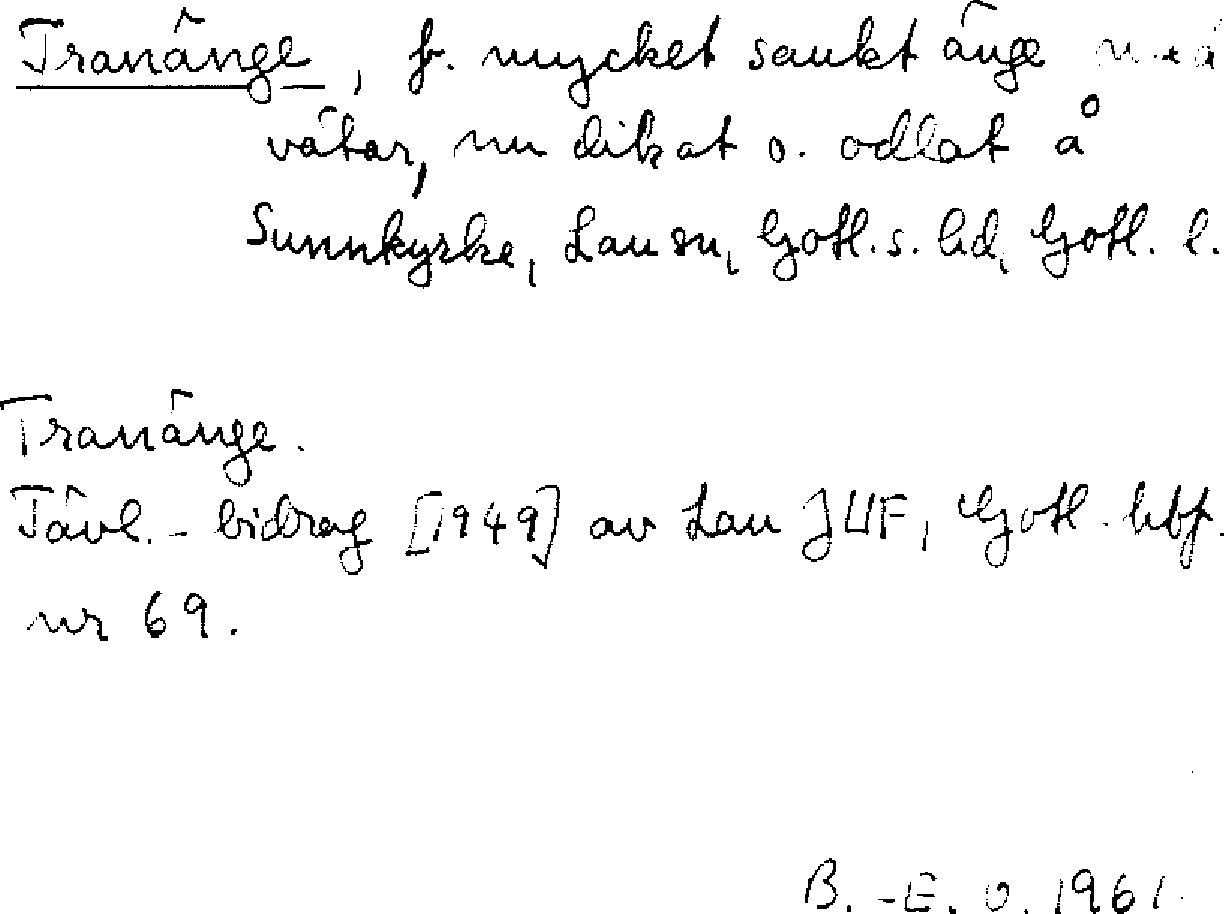 Tranänge, f. mycket sankt änge med
vätar, nu dikat o. odlat å
Sunnkyrke, Lau sn, Gotl. s. hd, Gotl. l.
Tranänge.
Tävl.-bidrag [1949] av Lau JUF, Gotl. hbf.
nr 69.
B.-E. O. 1961.